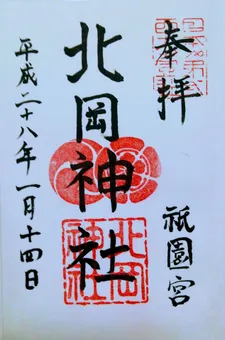 奉拝
祇園宮
北岡神社
北岡神社
平成二十八年一月十四日